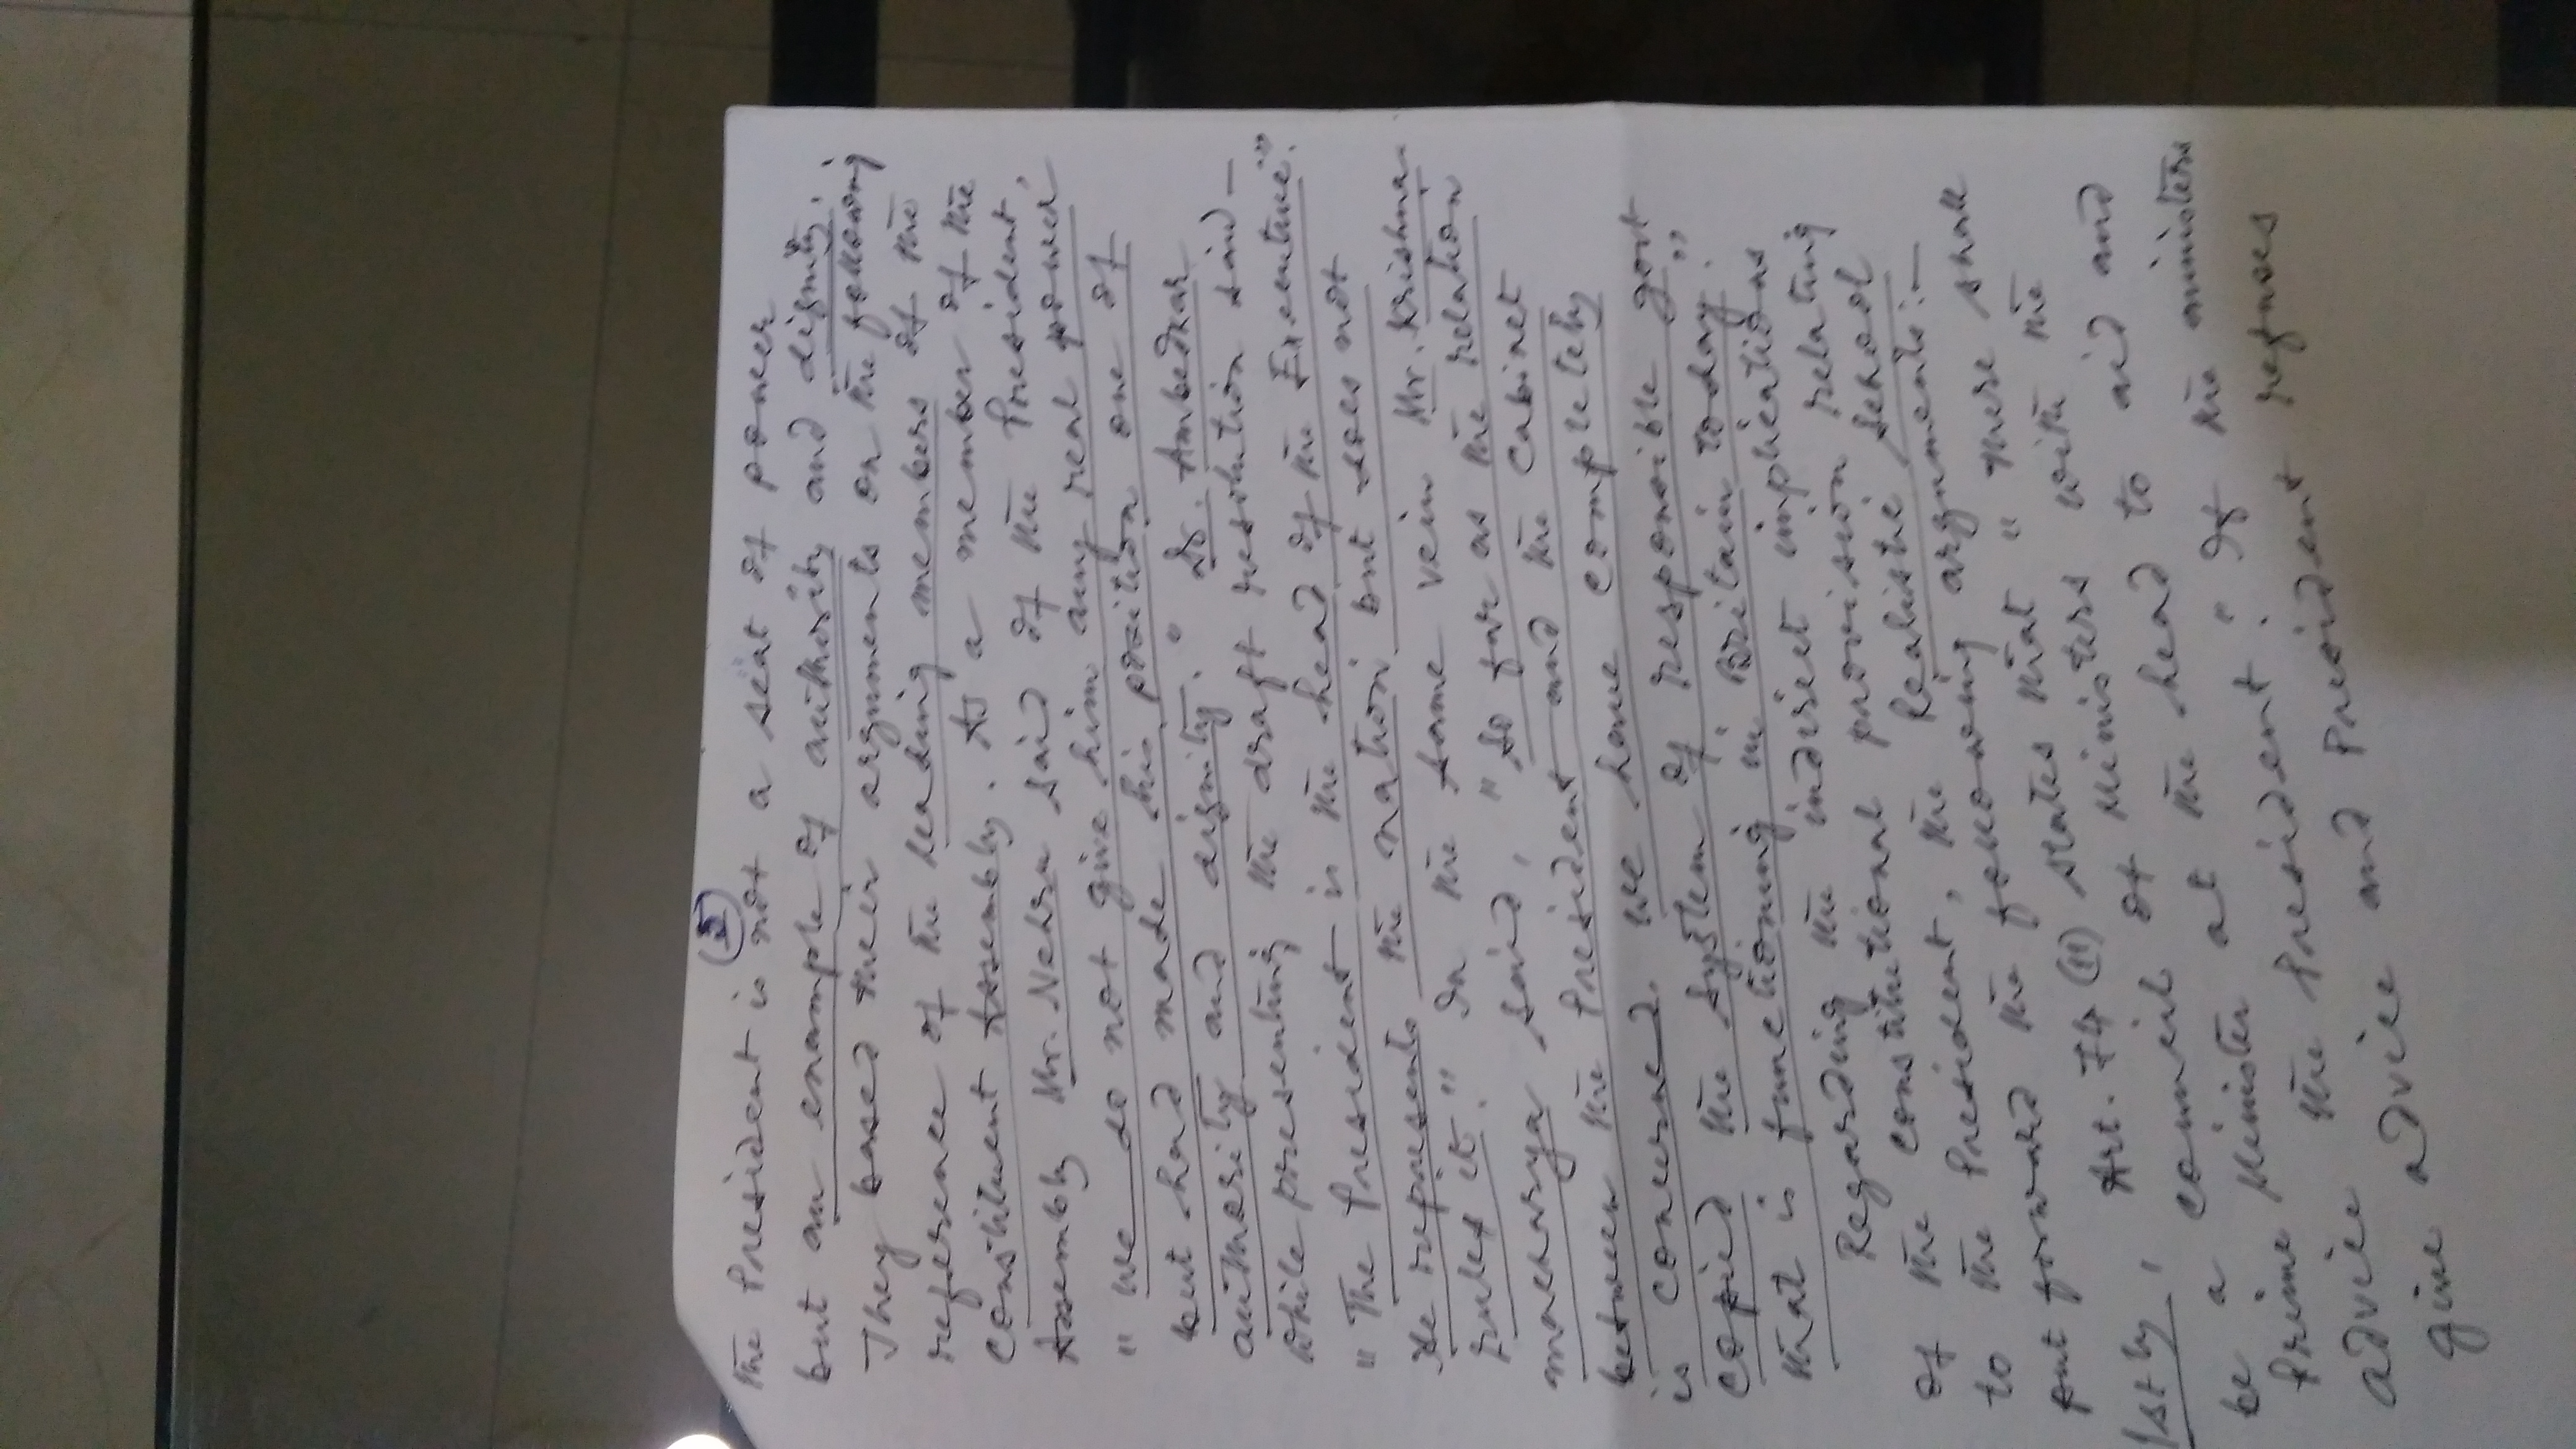 (5)
the President is not a seat of power
but an example of authority and dignity.
They based their arguments on the following
reference of the leading members of the
Constituent Assembly. As a member of the
Assembly Mr. Nehru said of the President,
"we do not give him any real power
but had made his position one of
authority and dignity." Dr. Ambedkar
while presenting the draft resolution said—
"The President is the head of the Executive."
He represents the nation but does not
rules it." In the same vein Mr. Krishna-
machary said, "So far as the relation
between the President and the Cabinet
is concerned. We have completely
copied the system of responsible govt
that is functioning in Britain today."
Regarding the indirect implications
of the constitutional provision relating
to the President, the Realistic School
put forward the following arguments:—
1stly, Art. 74 (1) states that "there shall
be a council of Ministers with the
Prime Minister at the head to aid and
advice the President." If the ministers
give advice and President refuses